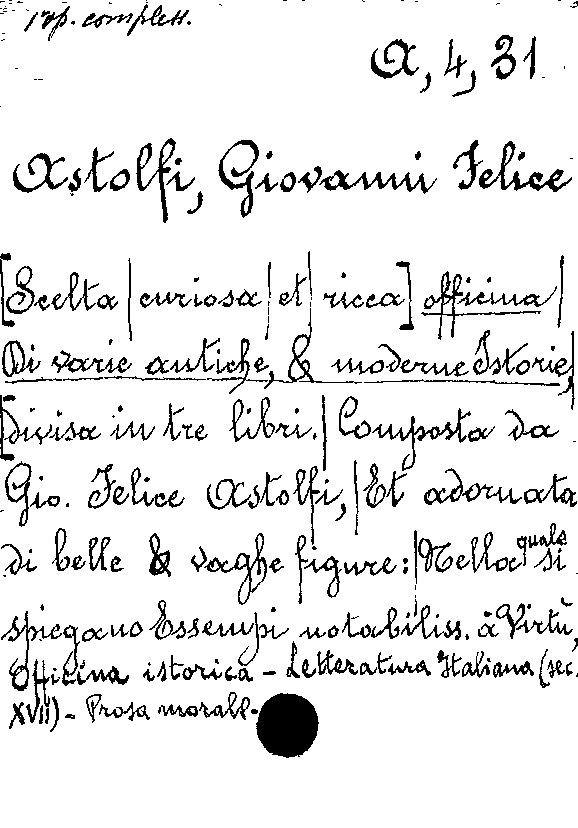 rip. complett.
A, 4, 31
Astolfi, Giovanni Felice
[Scelta | curiosa | et | ricca] officina |
Di varie antiche, & moderne Istorie, |
[divisa in tre libri. | Composta da
Gio. Felice Astolfi, | Et adornata
di belle & vaghe figure: | Nella quale si
spiegano Essempi notabiliss. à Virtù,
Officina istorica - Letteratura Italiana (sec.
XVII) - Prosa morale -